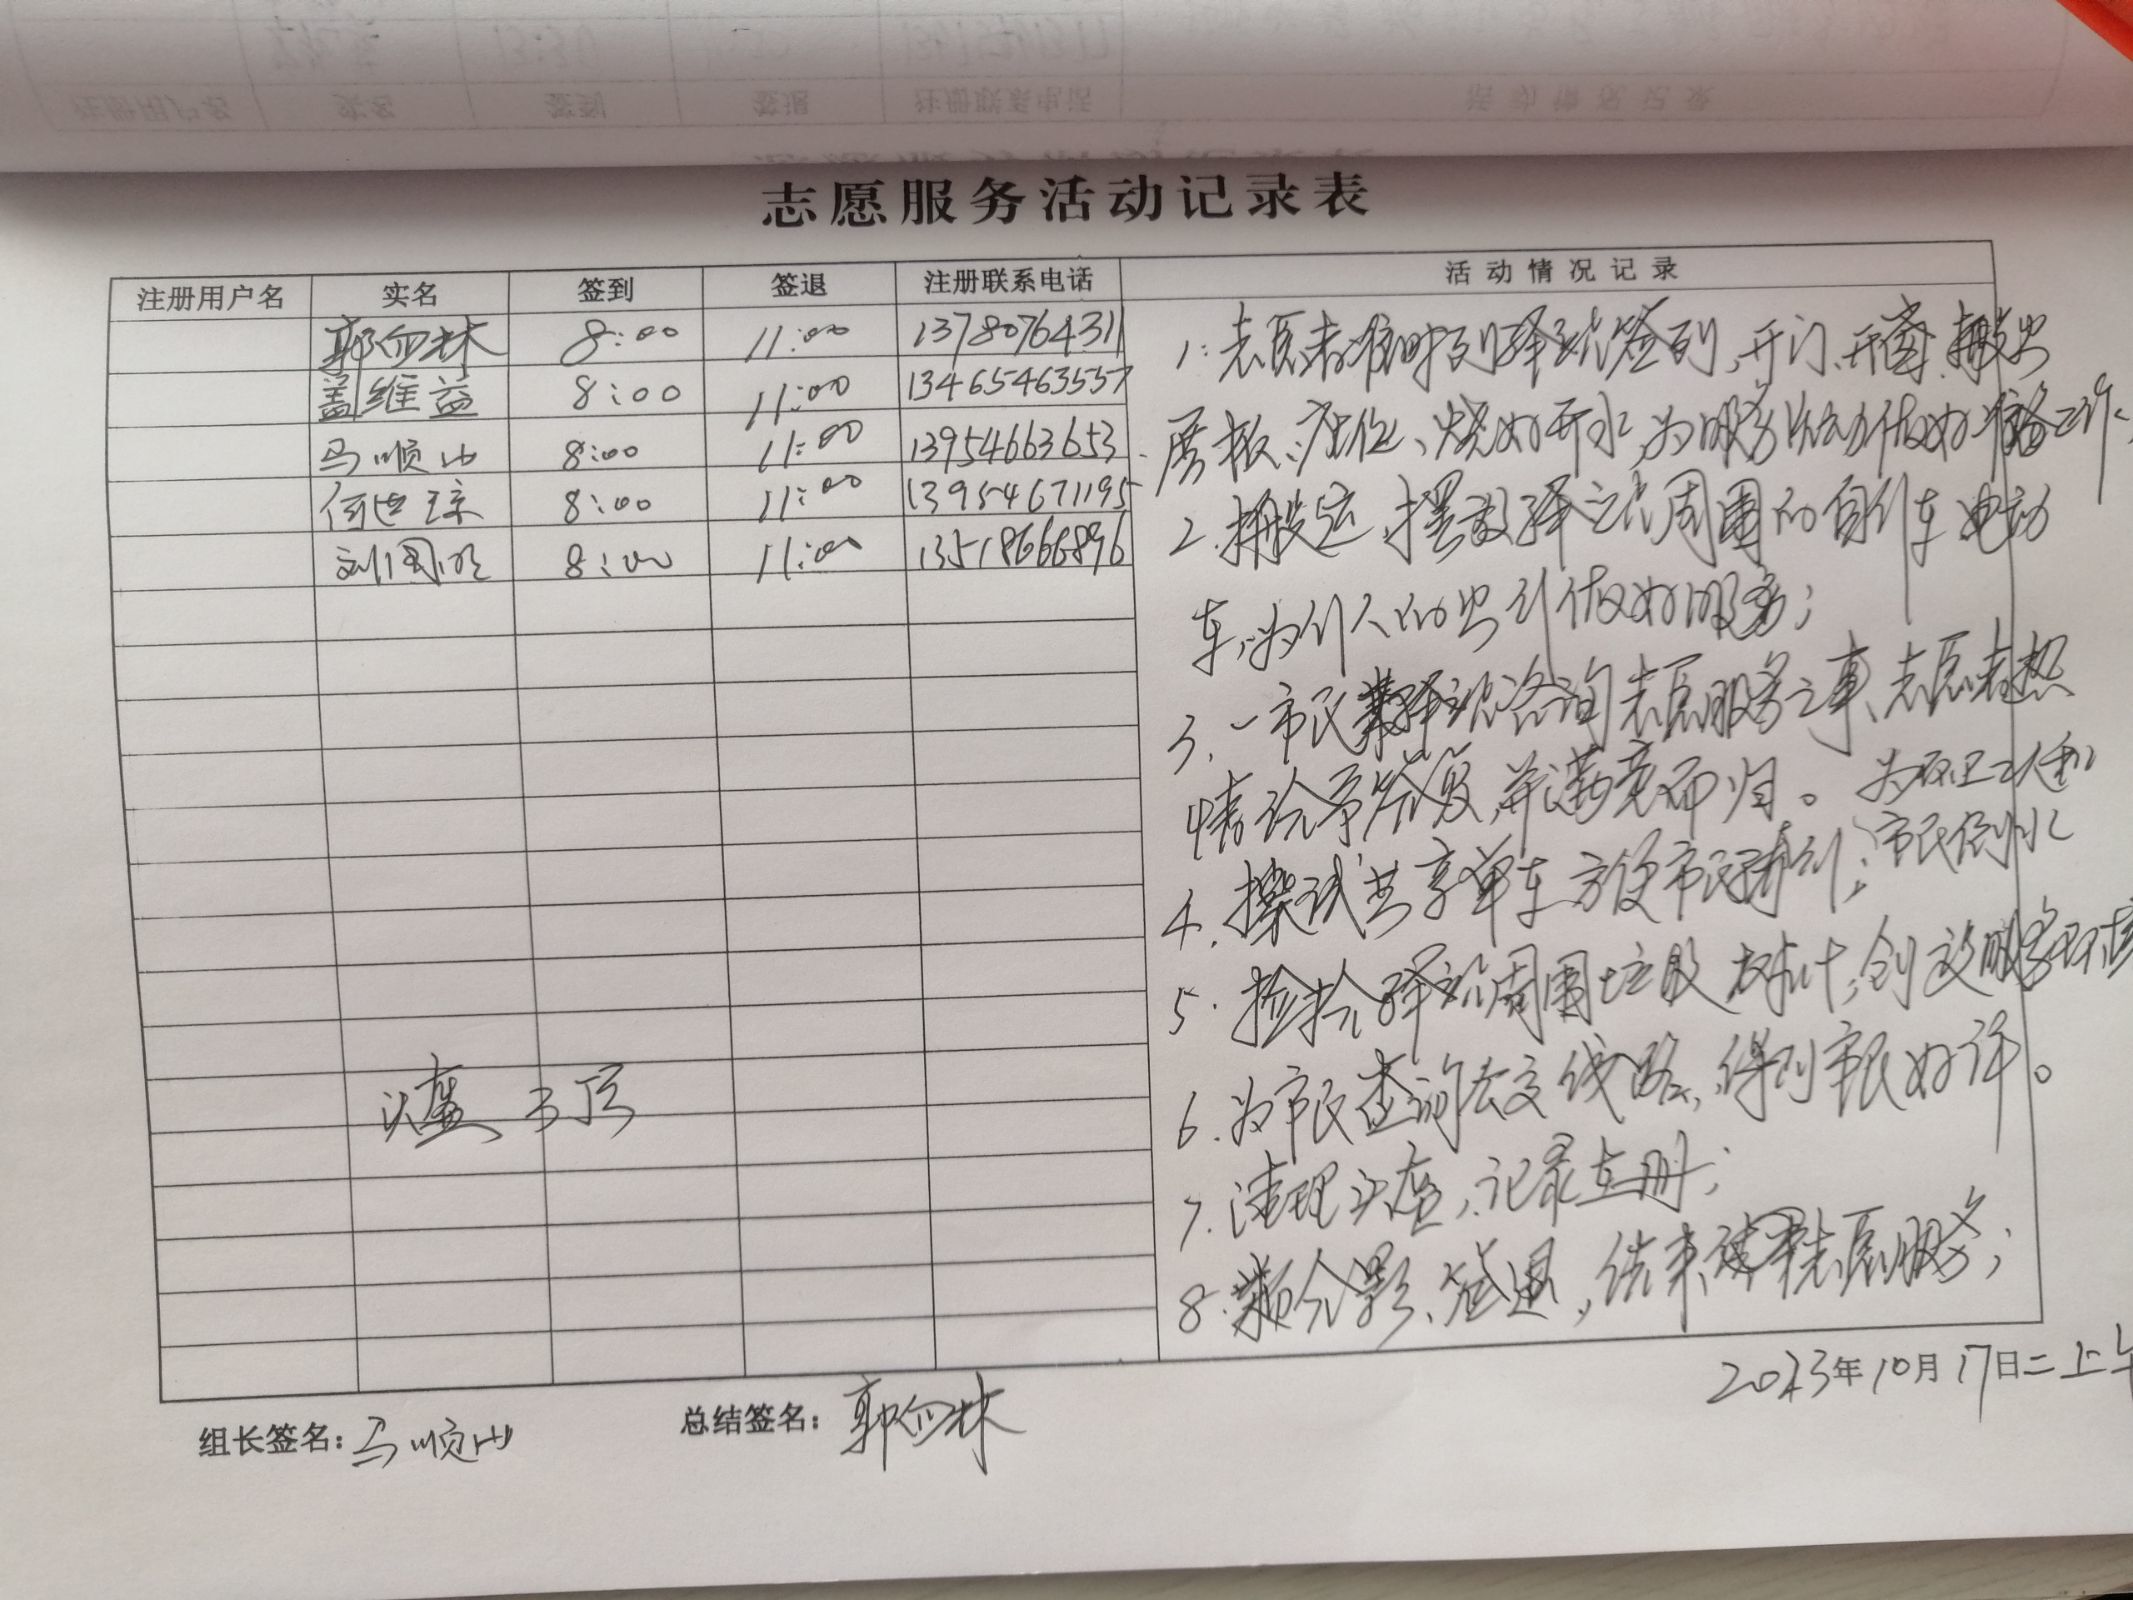 志愿服务活动记录表
注册用户名 实名 签到 签退 注册联系电话 活动情况记录
郭向林 8:00 11:00 13780764311
盖维益 8:00 11:00 13465463557
马顺山 8:00 11:00 13954663653
8:00 11:00 13954671195
刘国明 8:00 11:00 13518666896
1. 志愿者准时到驿站签到,开门、开窗、搬出
展板、座位、烧好开水,为服务活动做好准备工作。
2. 搬运、摆放驿站周围的自行车 电动
车,为行人的出行做好服务;
3. 一市民来驿站咨询志愿服务之事、志愿者热
情给予答复,并满意而归。
4. 擦试共享单车 方便市民骑行; 为环卫工人和
市民倒水
5. 捡拾驿站周围垃圾 树叶,创设服务环境
6. 为市民查询公交线路,得到市民好评。
7. 清理头盔,记录在册;
8. 合影、签退,结束志愿服务;
头盔
组长签名:马顺山 总结签名:郭向林
2023年10月17日二上午